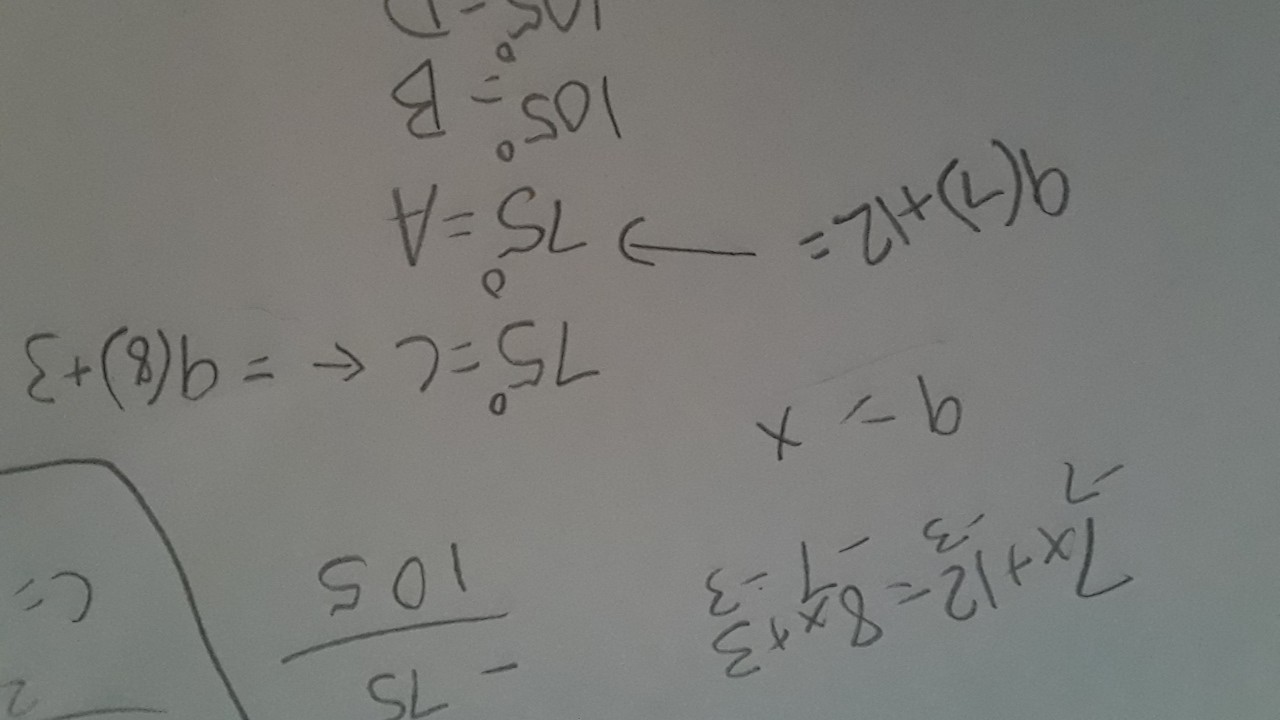 - 75
105
C =
7x+12 = 8x+3
-3 -7 -3
-7
9 = x
75° = C ← = 9(8)+3
9(7)+12 = → 75° = A
105° = B
105° = D